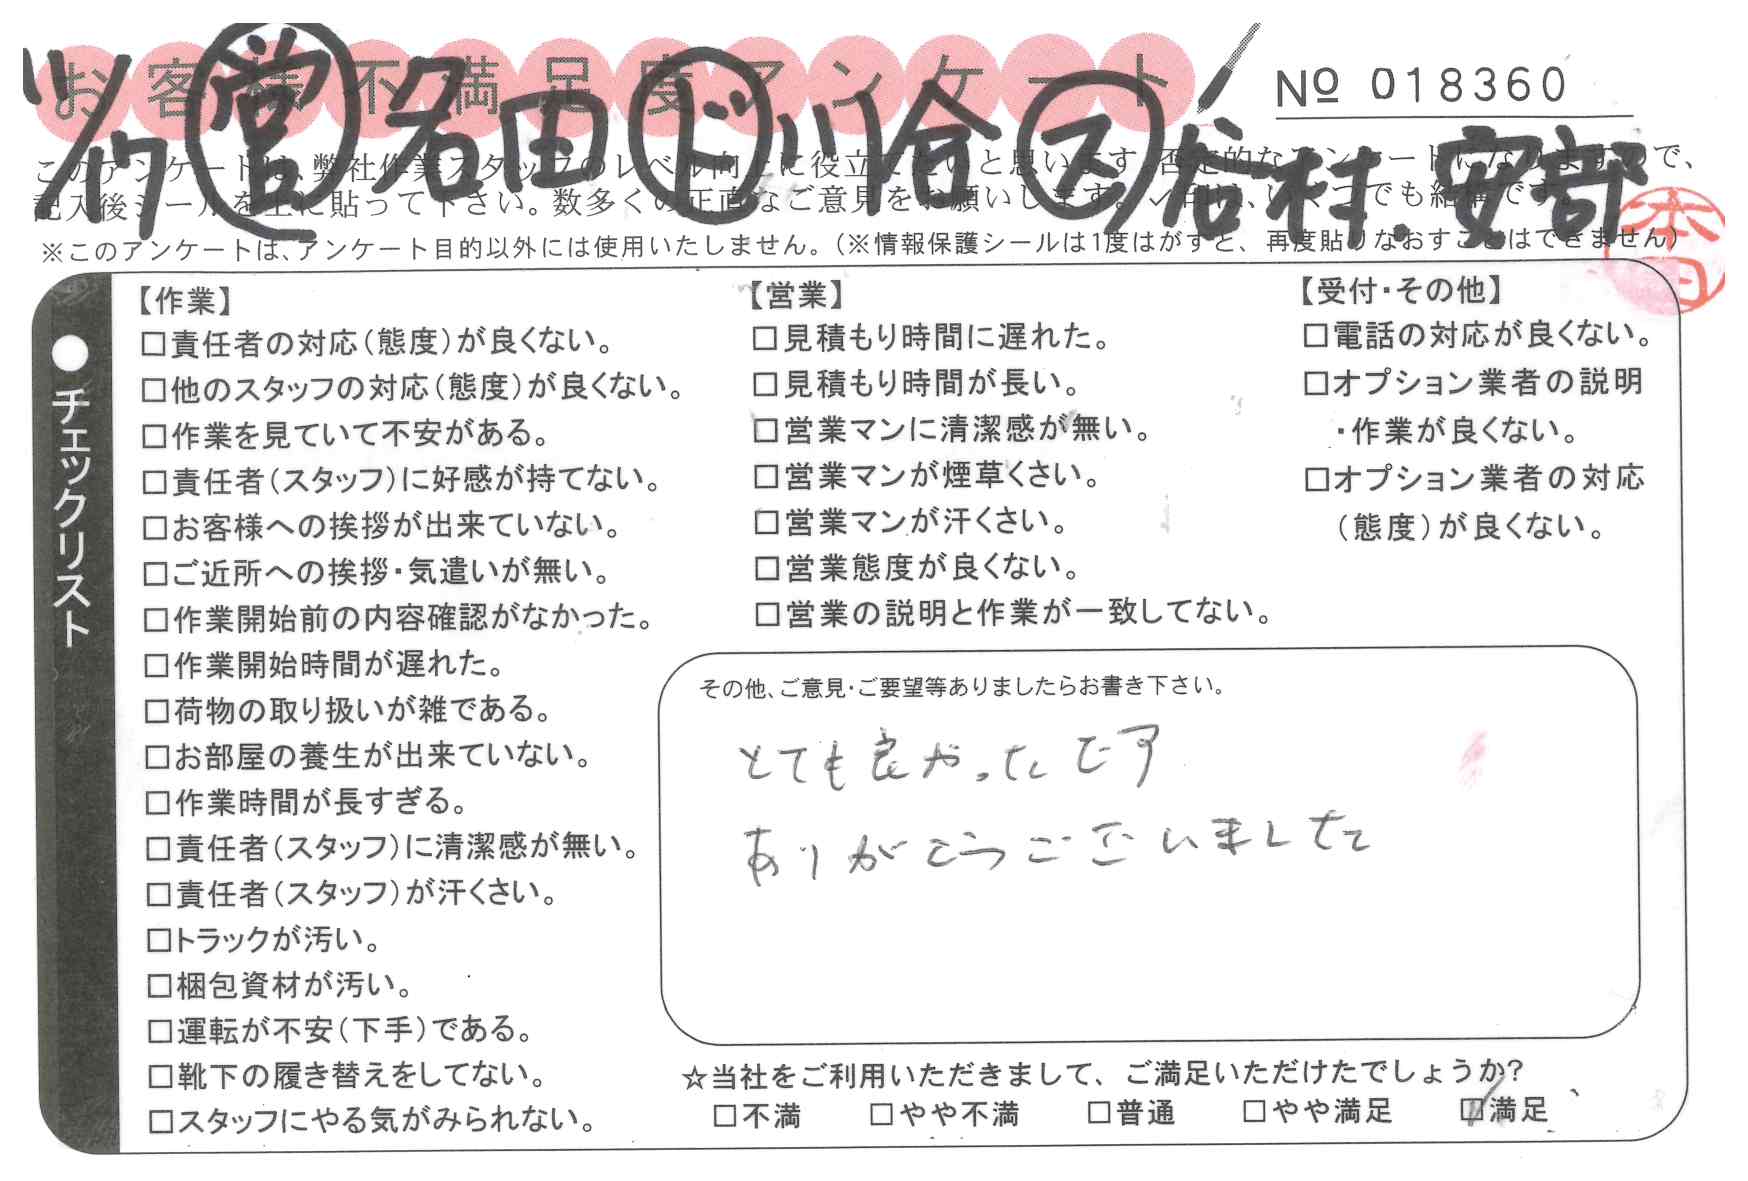 お客様不満足度アンケート
№ 018360
営 名田 ド 川合 ス 谷村.安部
このアンケートは、弊社作業スタッフのレベル向上に役立てたいと思います。否定的なアンケートになりますので、
記入後シールを上に貼って下さい。数多くの正直なご意見をお願いします。✓印は、いくつでも結構です。
※このアンケートは、アンケート目的以外には使用いたしません。（※情報保護シールは1度はがすと、再度貼りなおすことはできません）
●チェックリスト
【作業】
□責任者の対応（態度）が良くない。
□他のスタッフの対応（態度）が良くない。
□作業を見ていて不安がある。
□責任者（スタッフ）に好感が持てない。
□お客様への挨拶が出来ていない。
□ご近所への挨拶・気遣いが無い。
□作業開始前の内容確認がなかった。
□作業開始時間が遅れた。
□荷物の取り扱いが雑である。
□お部屋の養生が出来ていない。
□作業時間が長すぎる。
□責任者（スタッフ）に清潔感が無い。
□責任者（スタッフ）が汗くさい。
□トラックが汚い。
□梱包資材が汚い。
□運転が不安（下手）である。
□靴下の履き替えをしてない。
□スタッフにやる気がみられない。
【営業】
□見積もり時間に遅れた。
□見積もり時間が長い。
□営業マンに清潔感が無い。
□営業マンが煙草くさい。
□営業マンが汗くさい。
□営業態度が良くない。
□営業の説明と作業が一致してない。
【受付・その他】
□電話の対応が良くない。
□オプション業者の説明
・作業が良くない。
□オプション業者の対応
（態度）が良くない。
その他、ご意見・ご要望等ありましたらお書き下さい。
とても良かったです
ありがとうございました
☆当社をご利用いただきまして、ご満足いただけたでしょうか?
□不満 □やや不満 □普通 □やや満足 ☑満足